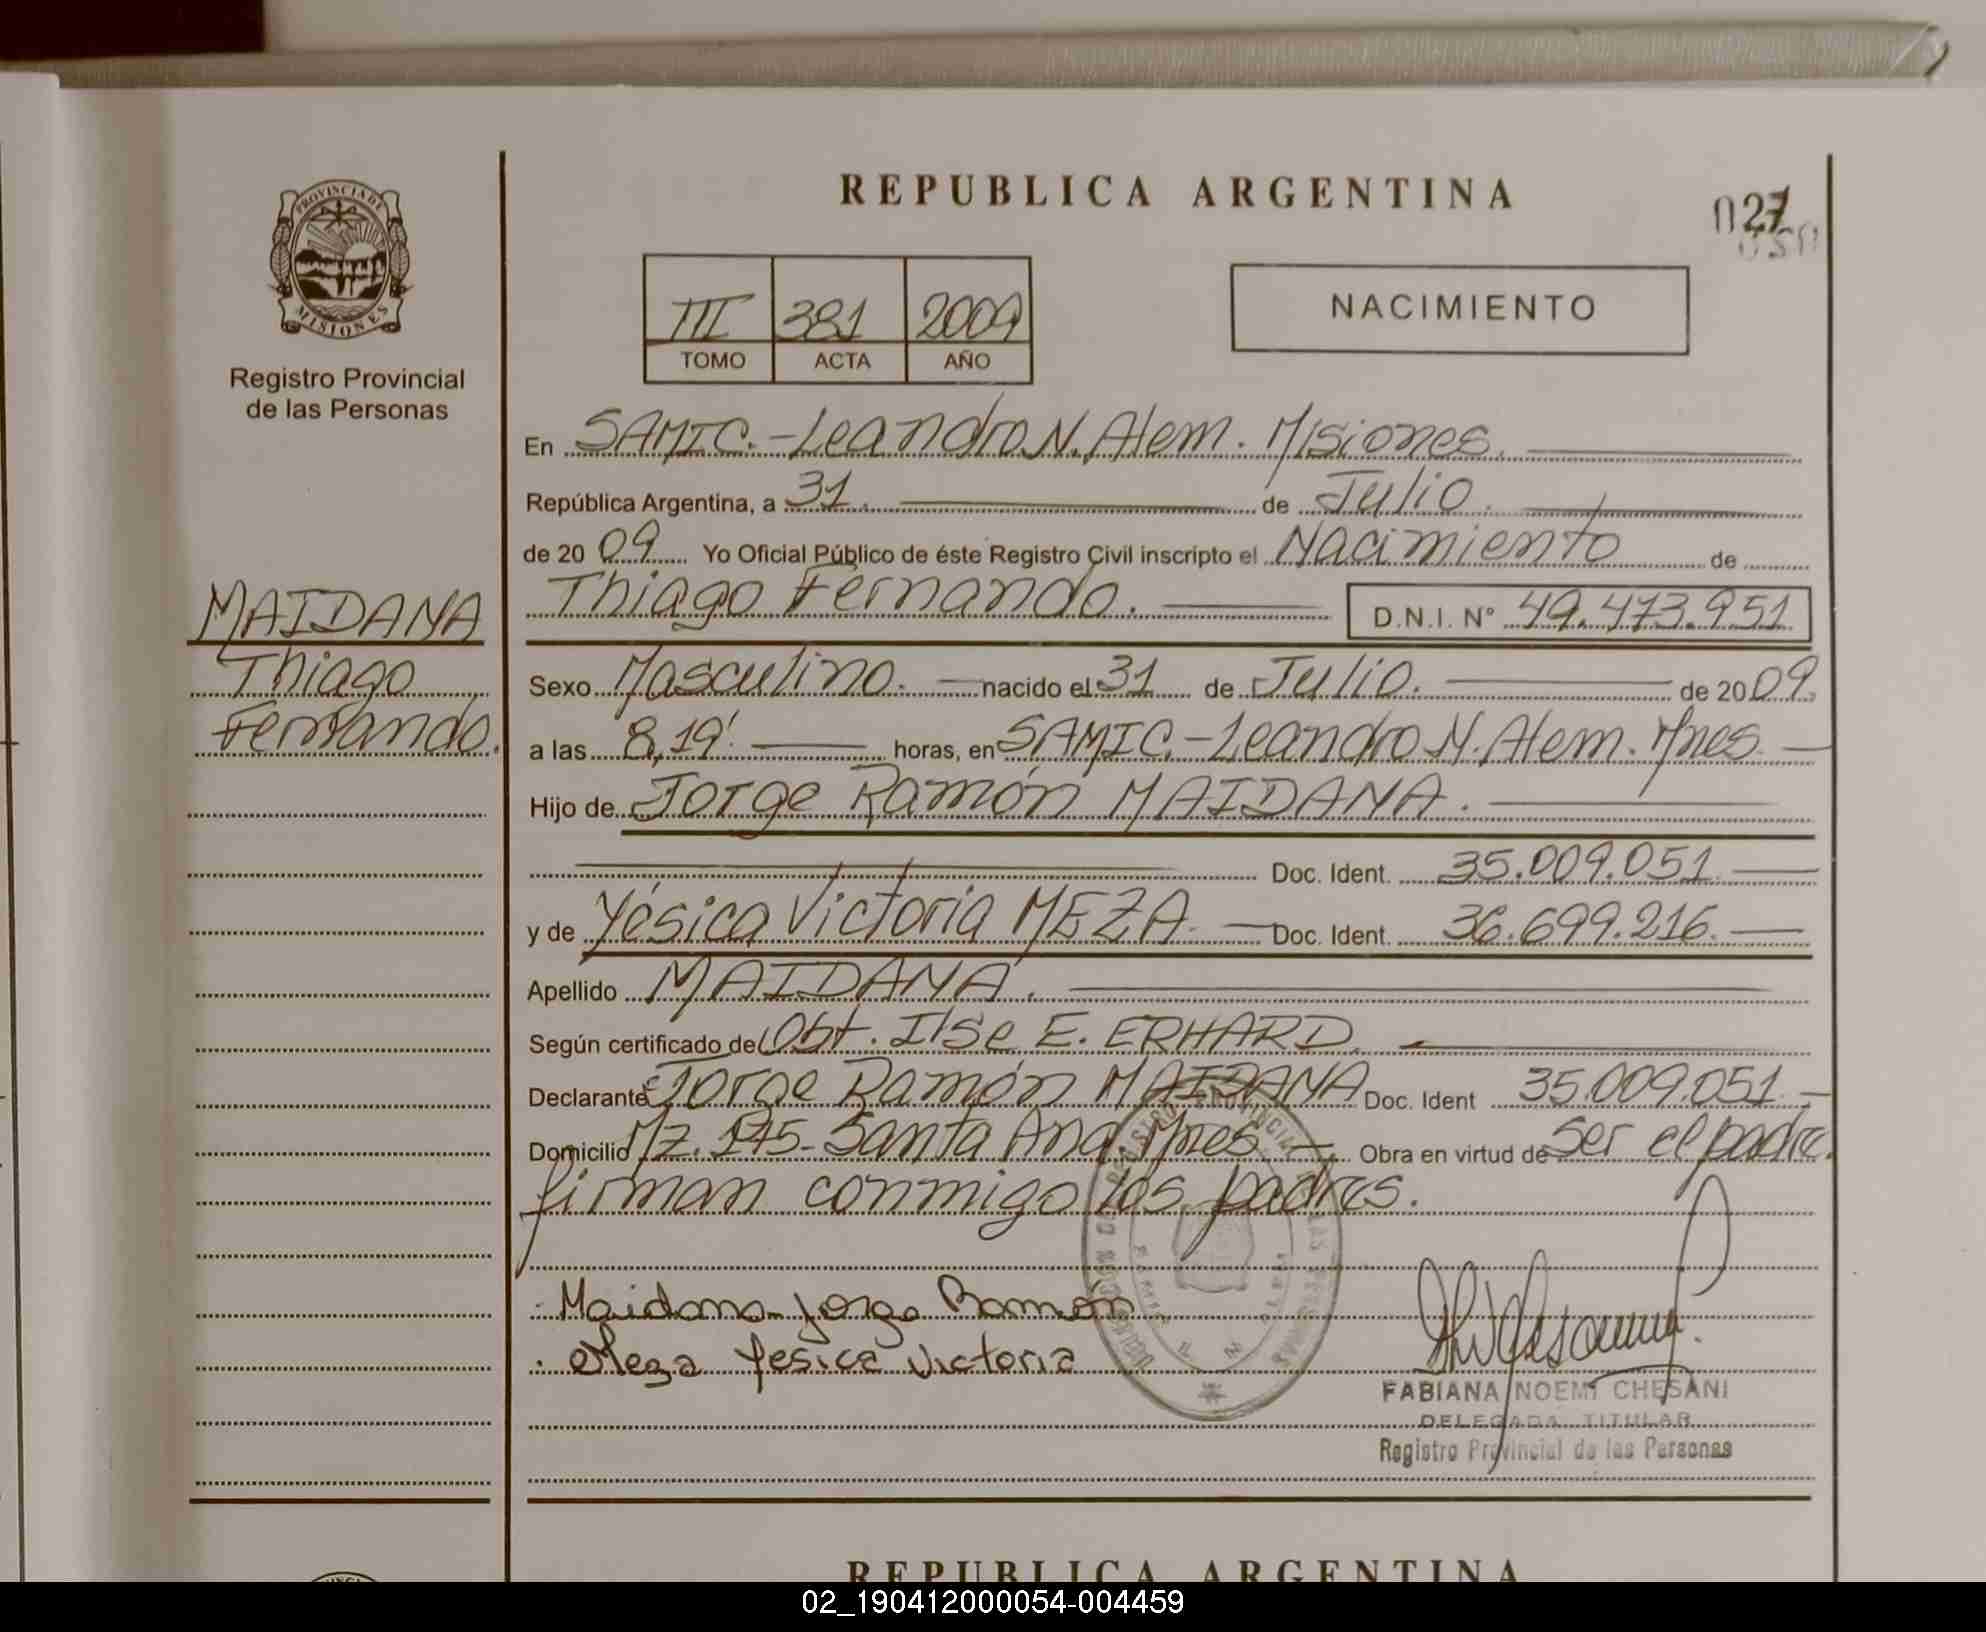 REPUBLICA ARGENTINA
027
PROVINCIA DE
MISIONES
Registro Provincial
de las Personas
III 381 2009
TOMO ACTA AÑO
NACIMIENTO
En SAMIC.-Leandro N. Alem. Misiones.
República Argentina, a 31. de Julio.
de 20 09 Yo Oficial Público de éste Registro Civil inscripto el Nacimiento de
Thiago Fernando. D.N.I. N° 49.473.951
MAIDANA
Thiago
Fernando.
Sexo Masculino. nacido el 31 de Julio. de 20 09.
a las 8,19' horas, en SAMIC.-Leandro N. Alem. Mnes.
Hijo de Jorge Ramón MAIDANA.
Doc. Ident. 35.009.051
y de Yésica Victoria MEZA. Doc. Ident. 36.699.216.
Apellido MAIDANA.
Según certificado de Obt. Ilse E. ERHARD.
Declarante Jorge Ramón MAIDANA Doc. Ident 35.009.051.
Domicilio Mz. 175-Santa Ana. Mnes Obra en virtud de ser el padre.
firman conmigo los padres.
Maidana Jorge Ramón
Meza Yesica Victoria
FABIANA NOEMI CHESANI
DELEGADA TITULAR
Registro Provincial de las Personas
REPUBLICA ARGENTINA
02_190412000054-004459